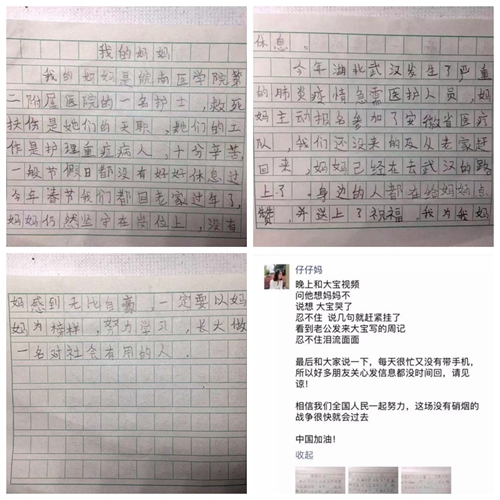 我的妈妈
我的妈妈是皖南医学院第
二附属医院的一名护士，救死
扶伤是她们的天职，她们的工
作是护理重症病人，十分辛苦，
一般节假日都没有好好休息过
今年春节我们都回老家过年了，
妈妈仍然坚守在岗位上，没有
休息。
今年湖北武汉发生了严重
的肺炎疫情急需医护人员，妈
妈主动报名参加了安徽省医疗
队，我们还没来的及从老家赶
回来，妈妈已经在去武汉的路
上了。身边的人都在给妈妈点
赞，并送上了祝福，我为我妈
妈感到无比自豪，一定要以妈
妈为榜样，努力学习，长大做
一名对社会有用的人。
仔仔妈
晚上和大宝视频
问他想妈妈不
说想 大宝哭了
忍不住 说几句就赶紧挂了
看到老公发来大宝写的周记
忍不住泪流面面
最后和大家说一下，每天很忙又没有带手机，
所以好多朋友关心发信息都没时间回，请见
谅！
相信我们全国人民一起努力，这场没有硝烟的
战争很快就会过去
中国加油！
收起